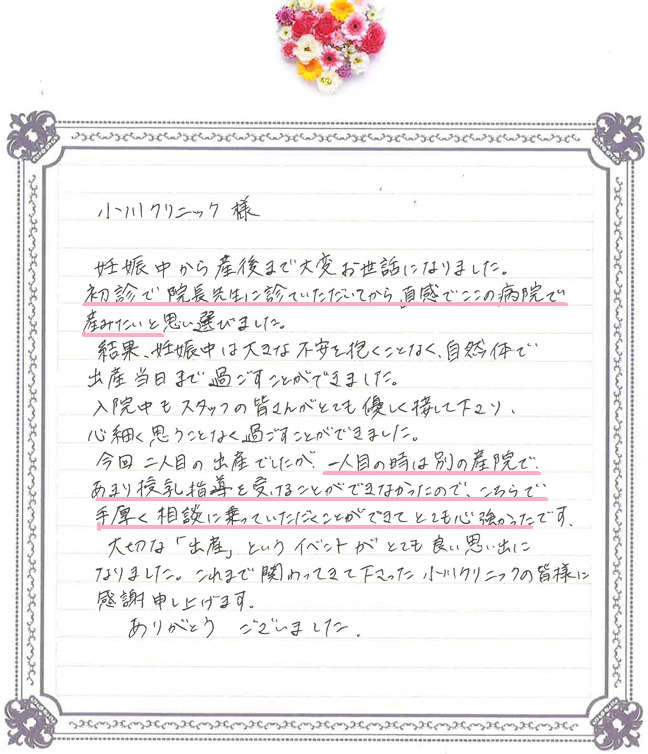 小川クリニック 様
妊娠中から産後まで大変お世話になりました。
初診で院長先生に診ていただいてから、直感でここの病院で
産みたいと思い選びました。
結果、妊娠中は大きな不安を抱くことなく、自然体で
出産当日まで過ごすことができました。
入院中もスタッフの皆さんがとても優しく接して下さり、
心細く思うことなく過ごすことができました。
今回二人目の出産でしたが、一人目の時は別の産院で
あまり授乳指導を受けることができなかったので、こちらで
手厚く相談に乗っていただくことができてとても心強かったです。
大切な「出産」というイベントがとても良い思い出に
なりました。これまで関わってきて下さった小川クリニックの皆様に
感謝申し上げます。
ありがとう ございました。